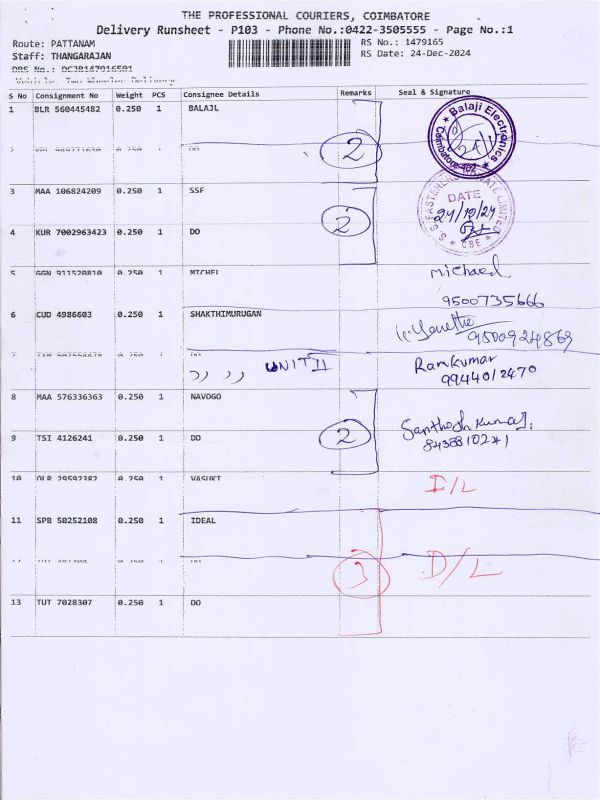 THE PROFESSIONAL COURIERS, COIMBATORE
Delivery Runsheet - P103 - Phone No.:0422-3505555 - Page No.:1
Route: PATTANAM
RS No.: 1479165
Staff: THANGARAJAN
RS Date: 24-Dec-2024
DRS No.:
S No Consignment No Weight PCS Consignee Details Remarks Seal & Signature
1 BLR 560445482 0.250 1 BALAJI
Balaji Electronics
Coimbatore
2
3 MAA 106824209 0.250 1 SSF
DATE
24/12/24
CBE
2
4 KUR 7002963423 0.250 1 DO
5 GGN 911520810 0.250 1 MICHEL
Michael
9500735666
6 CUD 4986603 0.250 1 SHAKTHIMURUGAN
9500924869
UNIT II
Ramkumar
9944012470
8 MAA 576336363 0.250 1 NAVOGO
Santhosh Kumar
2
9 TSI 4126241 0.250 1 DO
10 0.250 1 VASUKI
D/L
11 SPB 50252108 0.250 1 IDEAL
3
D/L
13 TUT 7028307 0.250 1 DO